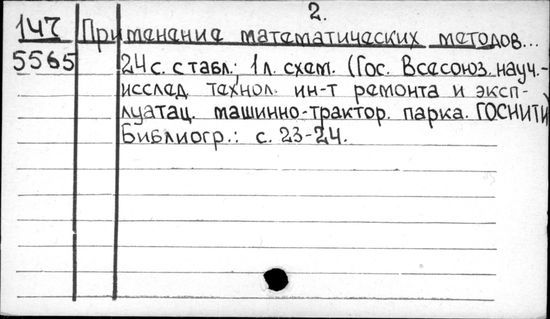 2.
147 Применение математических методов...
5565 24 с. с табл.; 1 л. схем. (Гос. Всесоюз. науч.-
исслед. технол. ин-т ремонта и эксп-
луатац. машинно-трактор. парка. ГОСНИТИ
Библиогр.: с. 23-24.